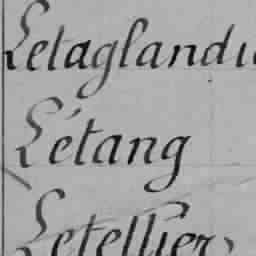 Letaglandi
Létang
Letellier